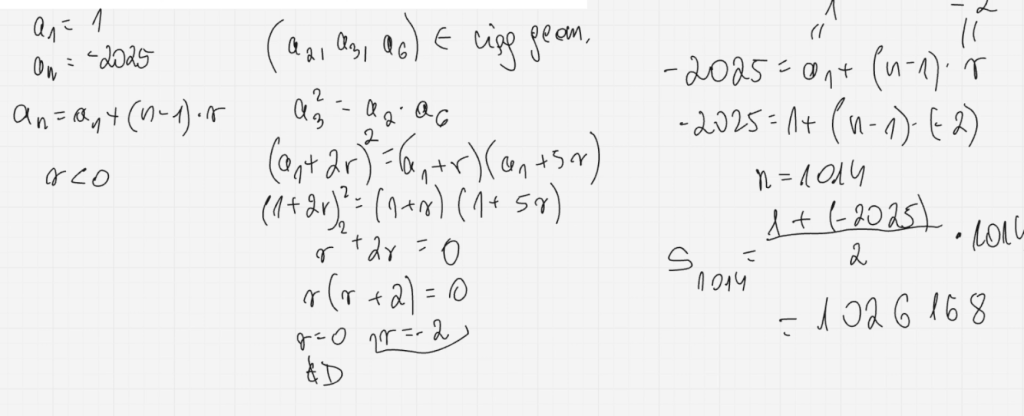 a₁ = 1
aₙ = -2025
aₙ = a₁ + (n-1)·r
r < 0
(a₂, a₃, a₆) ∈ ciąg geom.
a₃² = a₂ · a₆
(a₁ + 2r)² = (a₁ + r)(a₁ + 5r)
(1 + 2r)² = (1 + r)(1 + 5r)
r² + 2r = 0
r(r + 2) = 0
r = 0 r = -2
∉D
1 -2
|| ||
-2025 = a₁ + (n-1)·r
-2025 = 1 + (n-1)·(-2)
n = 1014
S₁₀₁₄ = (1 + (-2025))/2 · 1014
= 1026168